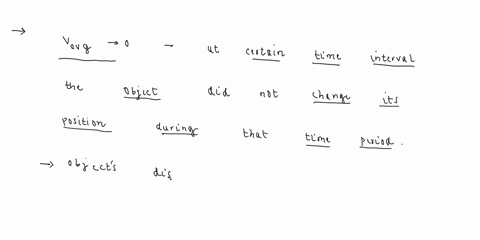 → Vavg → 0 → at certain time interval
the object did not change its
position during that time period.
→ object's dis